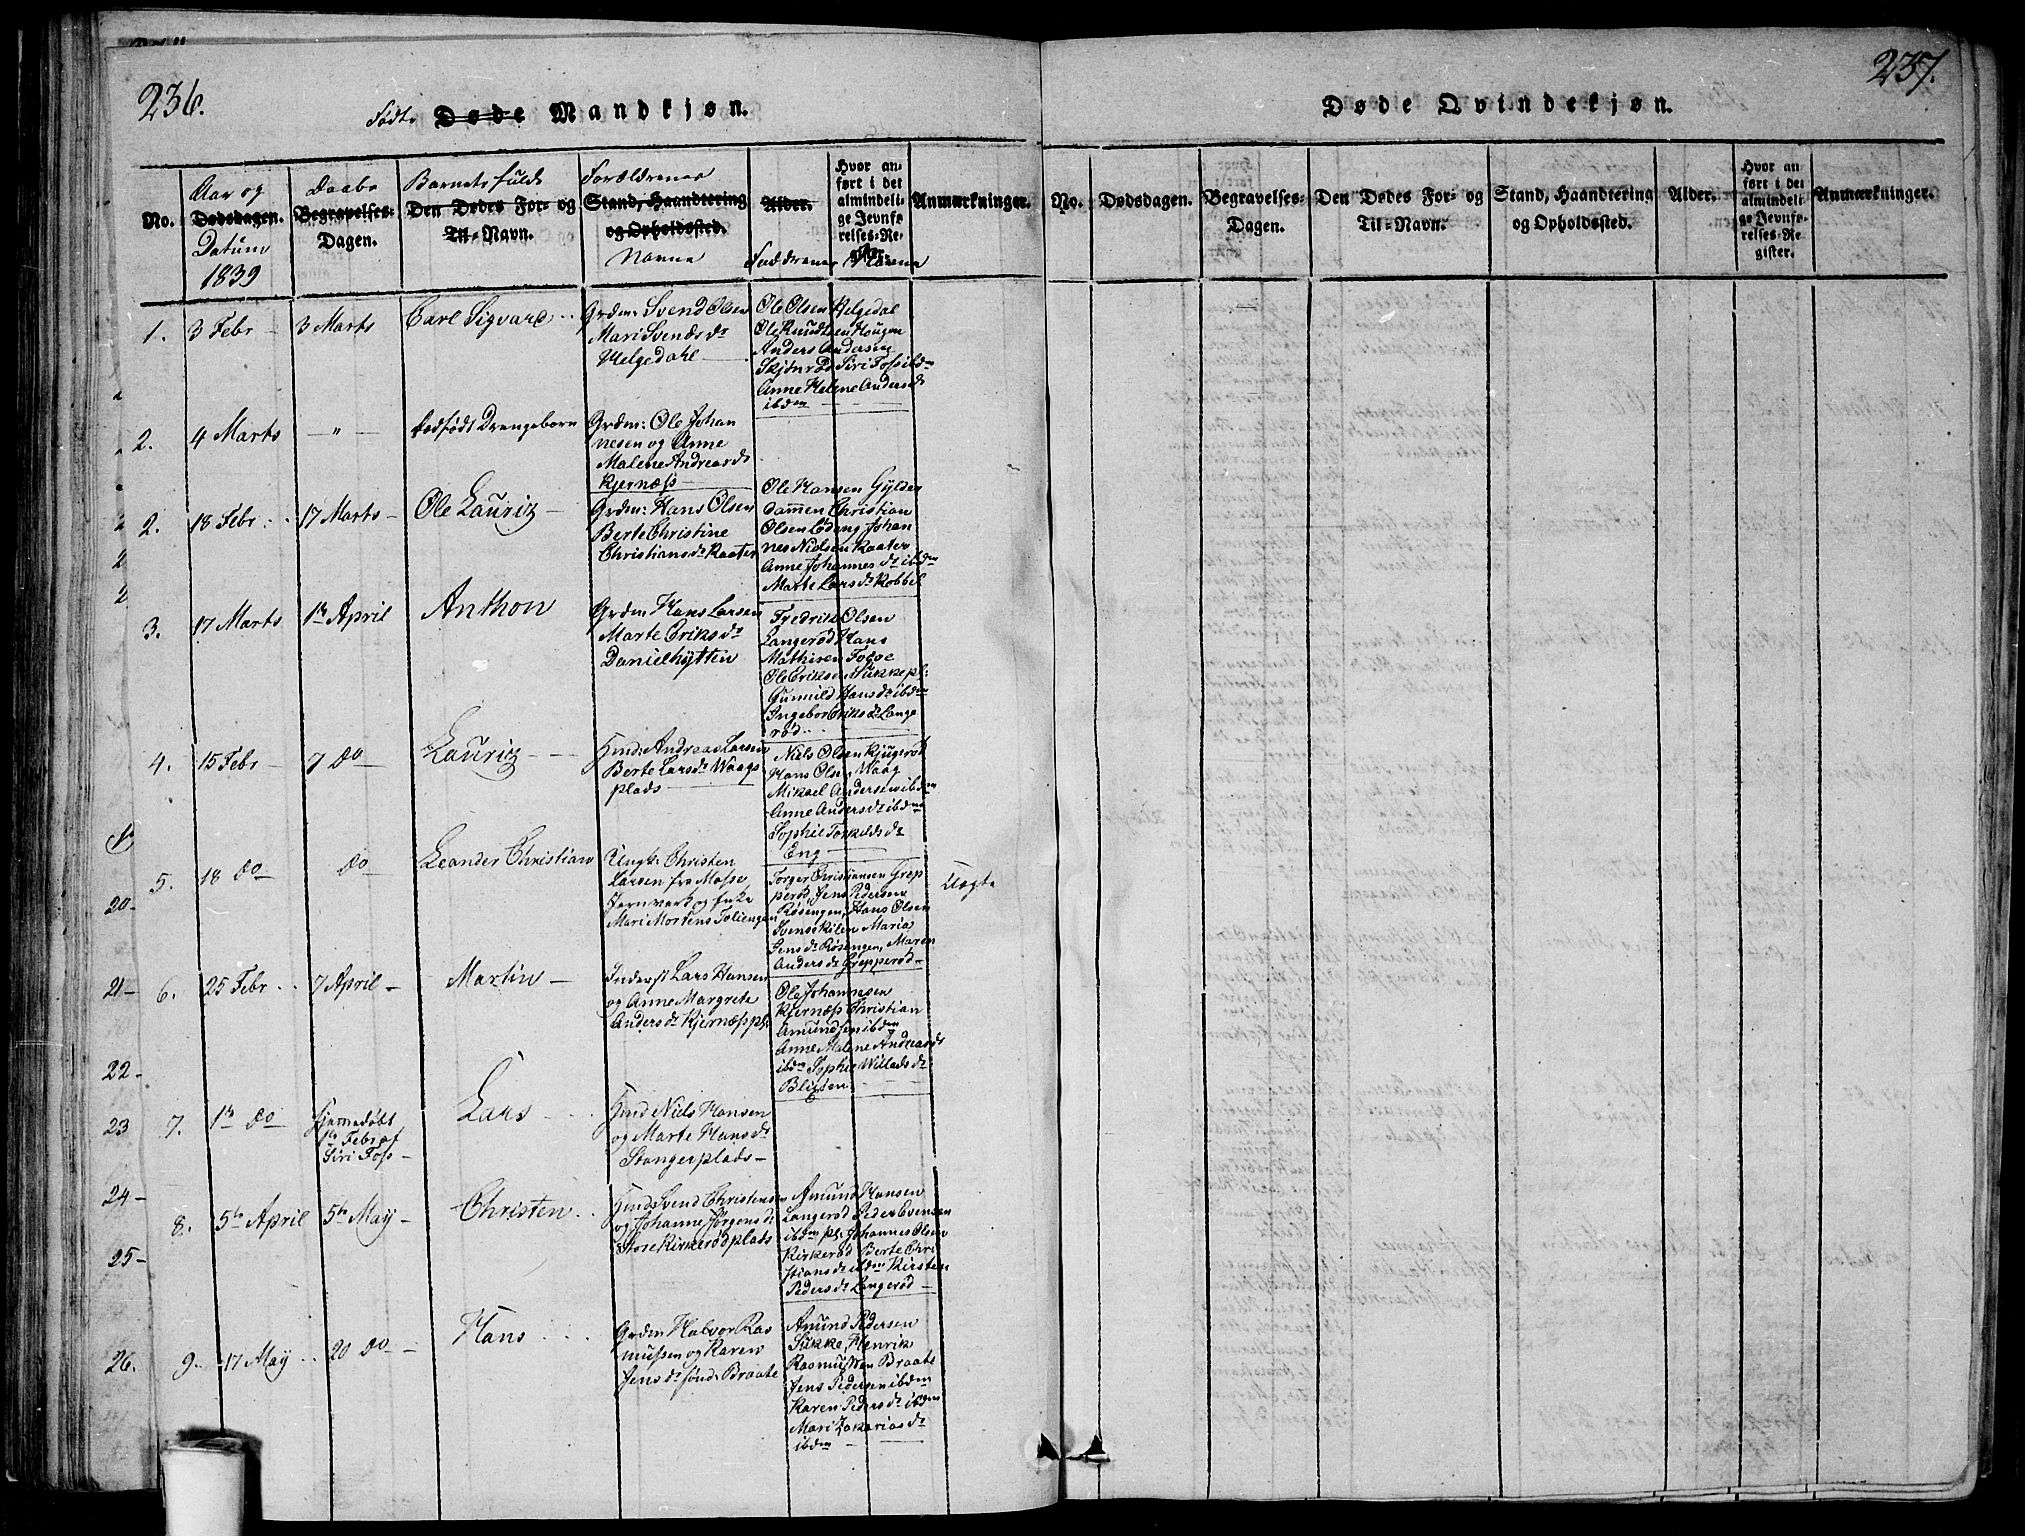 236.
Født. Døde Mandkjøn.
No.
Aar og
Dødsdagen.
Datum
1839
Daabs
Begravelses-
Dagen.
Barnets fulde
Den Dødes For- og
Til-Navn.
Forældrenes
Stand, Haandtering
og Opholdssted.
Navne
Alder.
Faddrenes Navne
Hvor an-
ført i det
almindeli-
ge Jevnfø-
relses-Re-
gister.
Anmærkninger.
1.
3 Febr
3 Marts
Carl Sigvard
Grdm: Svend Olsen
Mari Svendsdr
Helgedahl
Ole Olsen Helgedal
Ole Knudtsen Hougen
Anders Andersen
Skjönröd Siri Foss ibdm
Anne Helene Andersdr
ibdm
2.
4 Marts
— " —
Dødfödt Drengebarn
Grdm: Ole Johan
nesen og Anne
Malene Andreasdr
Kjernæss
2.
18 Febr
17 Marts
Ole Lauritz
Grdm: Hans Olsen
Berte Christine
Christiansdr Kaater
Ole Hansen Gylder
dammen Christian
Olsen Lödeng Johan
nes Nielsen Kaater
Anne Johannesdr ibdm
Marte Larsdr Kobbel
3.
17 Marts
1ste April
Anthon
Grdm Hans Larsen
Marte Eriksdr
Danielhytten
Fredrik Olsen
Langeröd Hans
Mathisen Folve
Ole Eriksen Sukkepl:
Gunnild Hansdr ibdm
Ingebor Eriksdr Lange
röd
4.
15 Febr
7 do
Lauritz
Hmd: Andreas Larsen
Berte Larsdr Waags
plads
Niels Olsen Kjugeröd
Hans Olsen Waag
Mikael Andersen ibdm
Anne Andersdr ibdm
Sophie Torkildsdr
Eng
5.
18 do
do
Leander Christian
Ungk: Christen
Larsen fra Mosse
Jernverk og Enke
Mari Mortens Foliengen
Torger Christiansen Grep
peröd Jens Pedersen
Røsengen, Hans Olsen
Svenskilen Maria
Jensdr Røsengen, Maren
Andersdr Grepperöd
Uægte
6.
25 Febr
7 April
Martin
Inderst Lars Hansen
og Anne Margrete
Andersdr Kjernæsspl:
Ole Johannesen
Kjernæss Christian
Amundsen ibdm
Anne Malene Andreasdr
ibdm Sophie Willadsdr
Blixten
7.
1ste do
Hjemmedøbt
Febr af
Siri Foss
Lars
Hmd Niels Hansen
og Marte Hansdr
Stangerplads
8.
5te April
5te May
Christen
Hmd Svend Christensen
og Johanne Jørgensdr
Store Kirkerödplads
Amund Hansen
Langeröd Peder Evensen
ibdm pl: Johannes Olsen
Kirkeröd Berte Chri
stiansdr ibdm Kirsten
Pedersdr Langeröd
9.
17 May
20 do
Hans
Grdm Halvor Ras
mussen og Karen
Jensdr søndr Braate
Amund Pedersen
Sukke, Henrik
Rasmussen Braate
Jens Pedersen ibdm
Karen Pedersdr ibdm
Mari Zakariasdr
ibdm
20
21
22
23
24
25
26.
237.
Døde Qvindekjøn.
No.
Dødsdagen.
Begravelses-
Dagen.
Den Dødes For- og
Til-Navn.
Stand, Haandtering
og Opholdssted.
Alder.
Hvor an-
ført i det
almindeli-
ge Jevnfø-
relses-Re-
gister.
Anmærkninger.